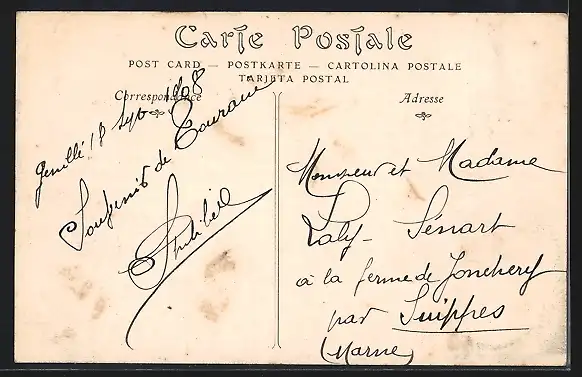 Carte Postale
POST CARD — POSTKARTE — CARTOLINA POSTALE
TARJETA POSTAL
Correspondance
Adresse
Genillé 18 Sept 1908
Souvenir de Touraine
Monsieur et Madame
Laly-Sénart
à la ferme de Jonchery
par Suippes
(Marne)